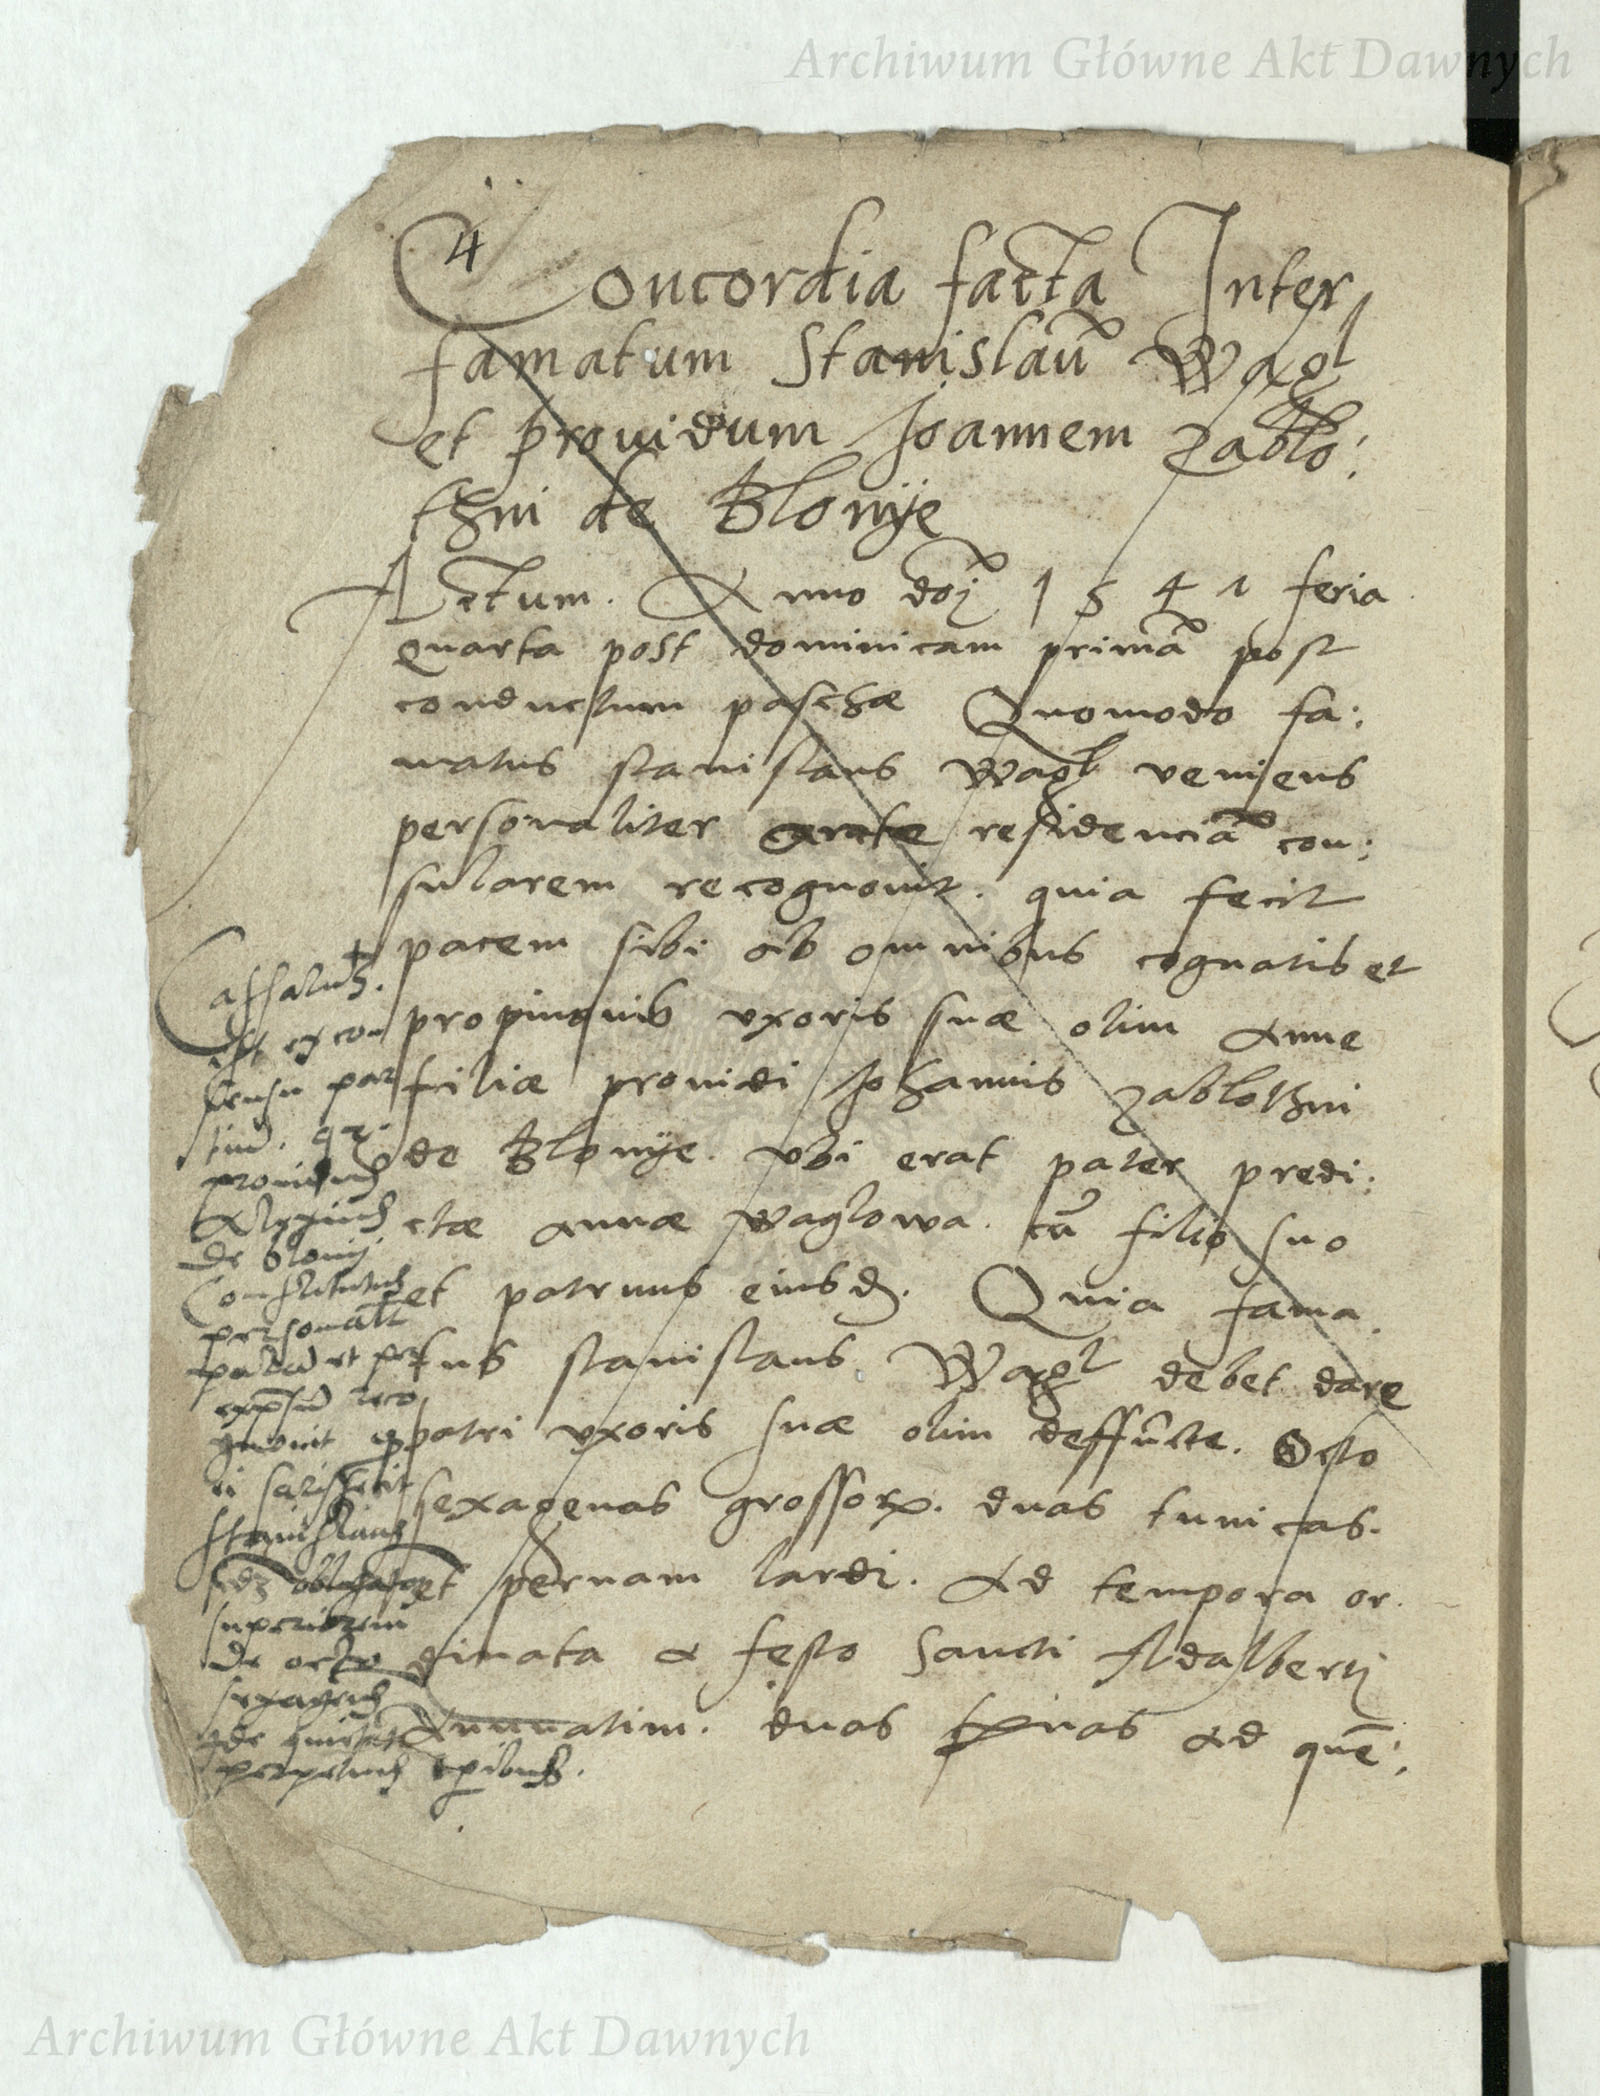 Archiwum Główne Akt Dawnych
4
Concordia facta Inter
famatum Stanislaū Wagl
et providum Joannem Zablo:
thni de Blonije
Actum. Anno doj 1541 feria
quarta post dominicam primā post
conductum paschæ Quomodo fa:
matus stanislaus Wagl veniens
personaliter residenciā con:
sularem recognovit. quia fecit
pacem sibi ab omnibus cognatis et
propinquis uxoris suæ olim Anne
filiæ providi Johannis Zablothni
de Blonije. ubi erat pater predi:
ctæ Annæ Waglowa. cū filio suo
et patruus eiusd. Quia fama
tus stanislaus Wagl debet dare
patri uxoris suæ olim deffūcte. Octo
sexagenas grossor. duas tunicas.
et pernam lardi. Ad tempora or
dinata a festo Sancti Adalberti
Annuatim. duas ad quē:
Cassatu.
est ex con
sensu par
providus
de blonij
Constitutus
personalit
palā et per
expssū reco
gnovit q
ei satisfecit
stanislaus
superiorem
de octo
sexagenis